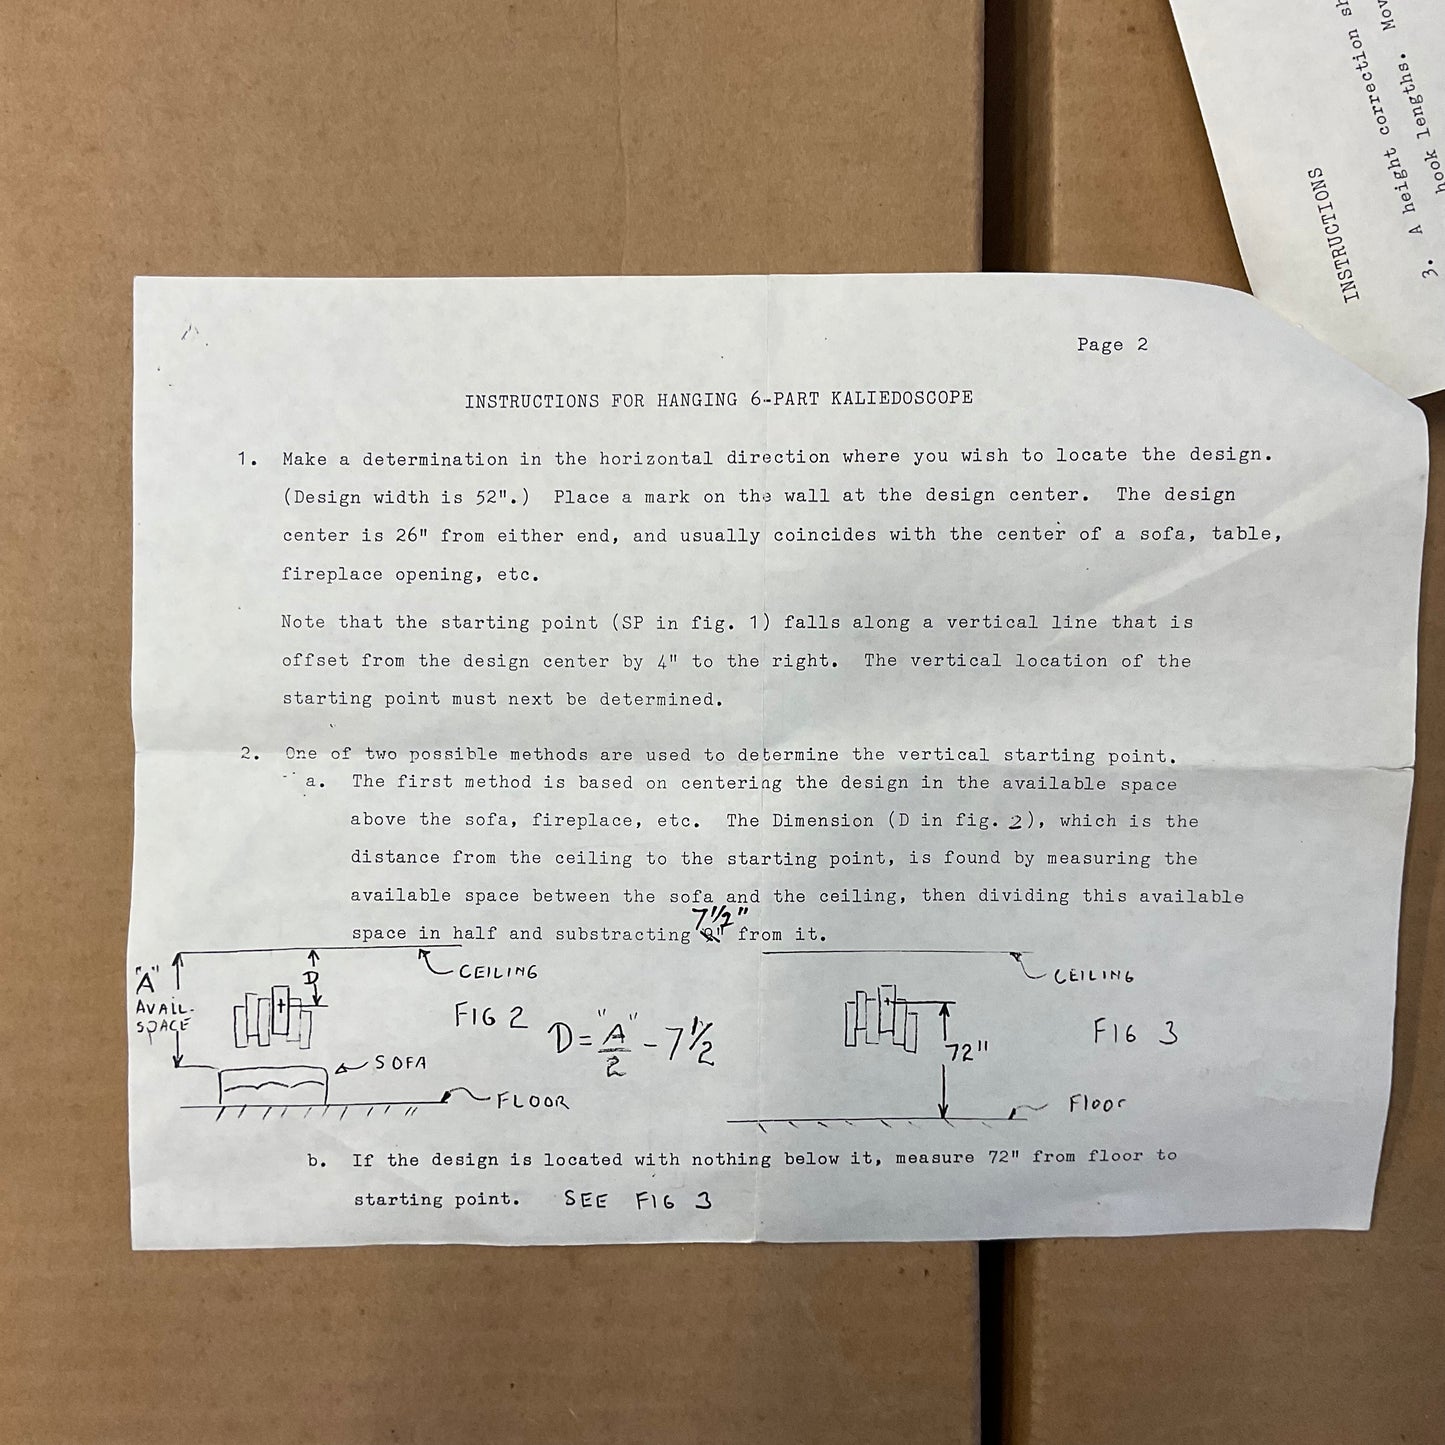 Page 2
INSTRUCTIONS FOR HANGING 6-PART KALIEDOSCOPE
1. Make a determination in the horizontal direction where you wish to locate the design.
(Design width is 52".) Place a mark on the wall at the design center. The design
center is 26" from either end, and usually coincides with the center of a sofa, table,
fireplace opening, etc.
Note that the starting point (SP in fig. 1) falls along a vertical line that is
offset from the design center by 4" to the right. The vertical location of the
starting point must next be determined.
2. One of two possible methods are used to determine the vertical starting point.
a. The first method is based on centering the design in the available space
above the sofa, fireplace, etc. The Dimension (D in fig. 2), which is the
distance from the ceiling to the starting point, is found by measuring the
available space between the sofa and the ceiling, then dividing this available
space in half and substracting 7 1/2" from it.
"A"
AVAIL.
SPACE
D
CEILING
FIG 2
SOFA
FLOOR
D = "A"/2 - 7 1/2
CEILING
FIG 3
72"
Floor
b. If the design is located with nothing below it, measure 72" from floor to
starting point. SEE FIG 3
INSTRUCTIONS
3. A height correction
hook lengths.